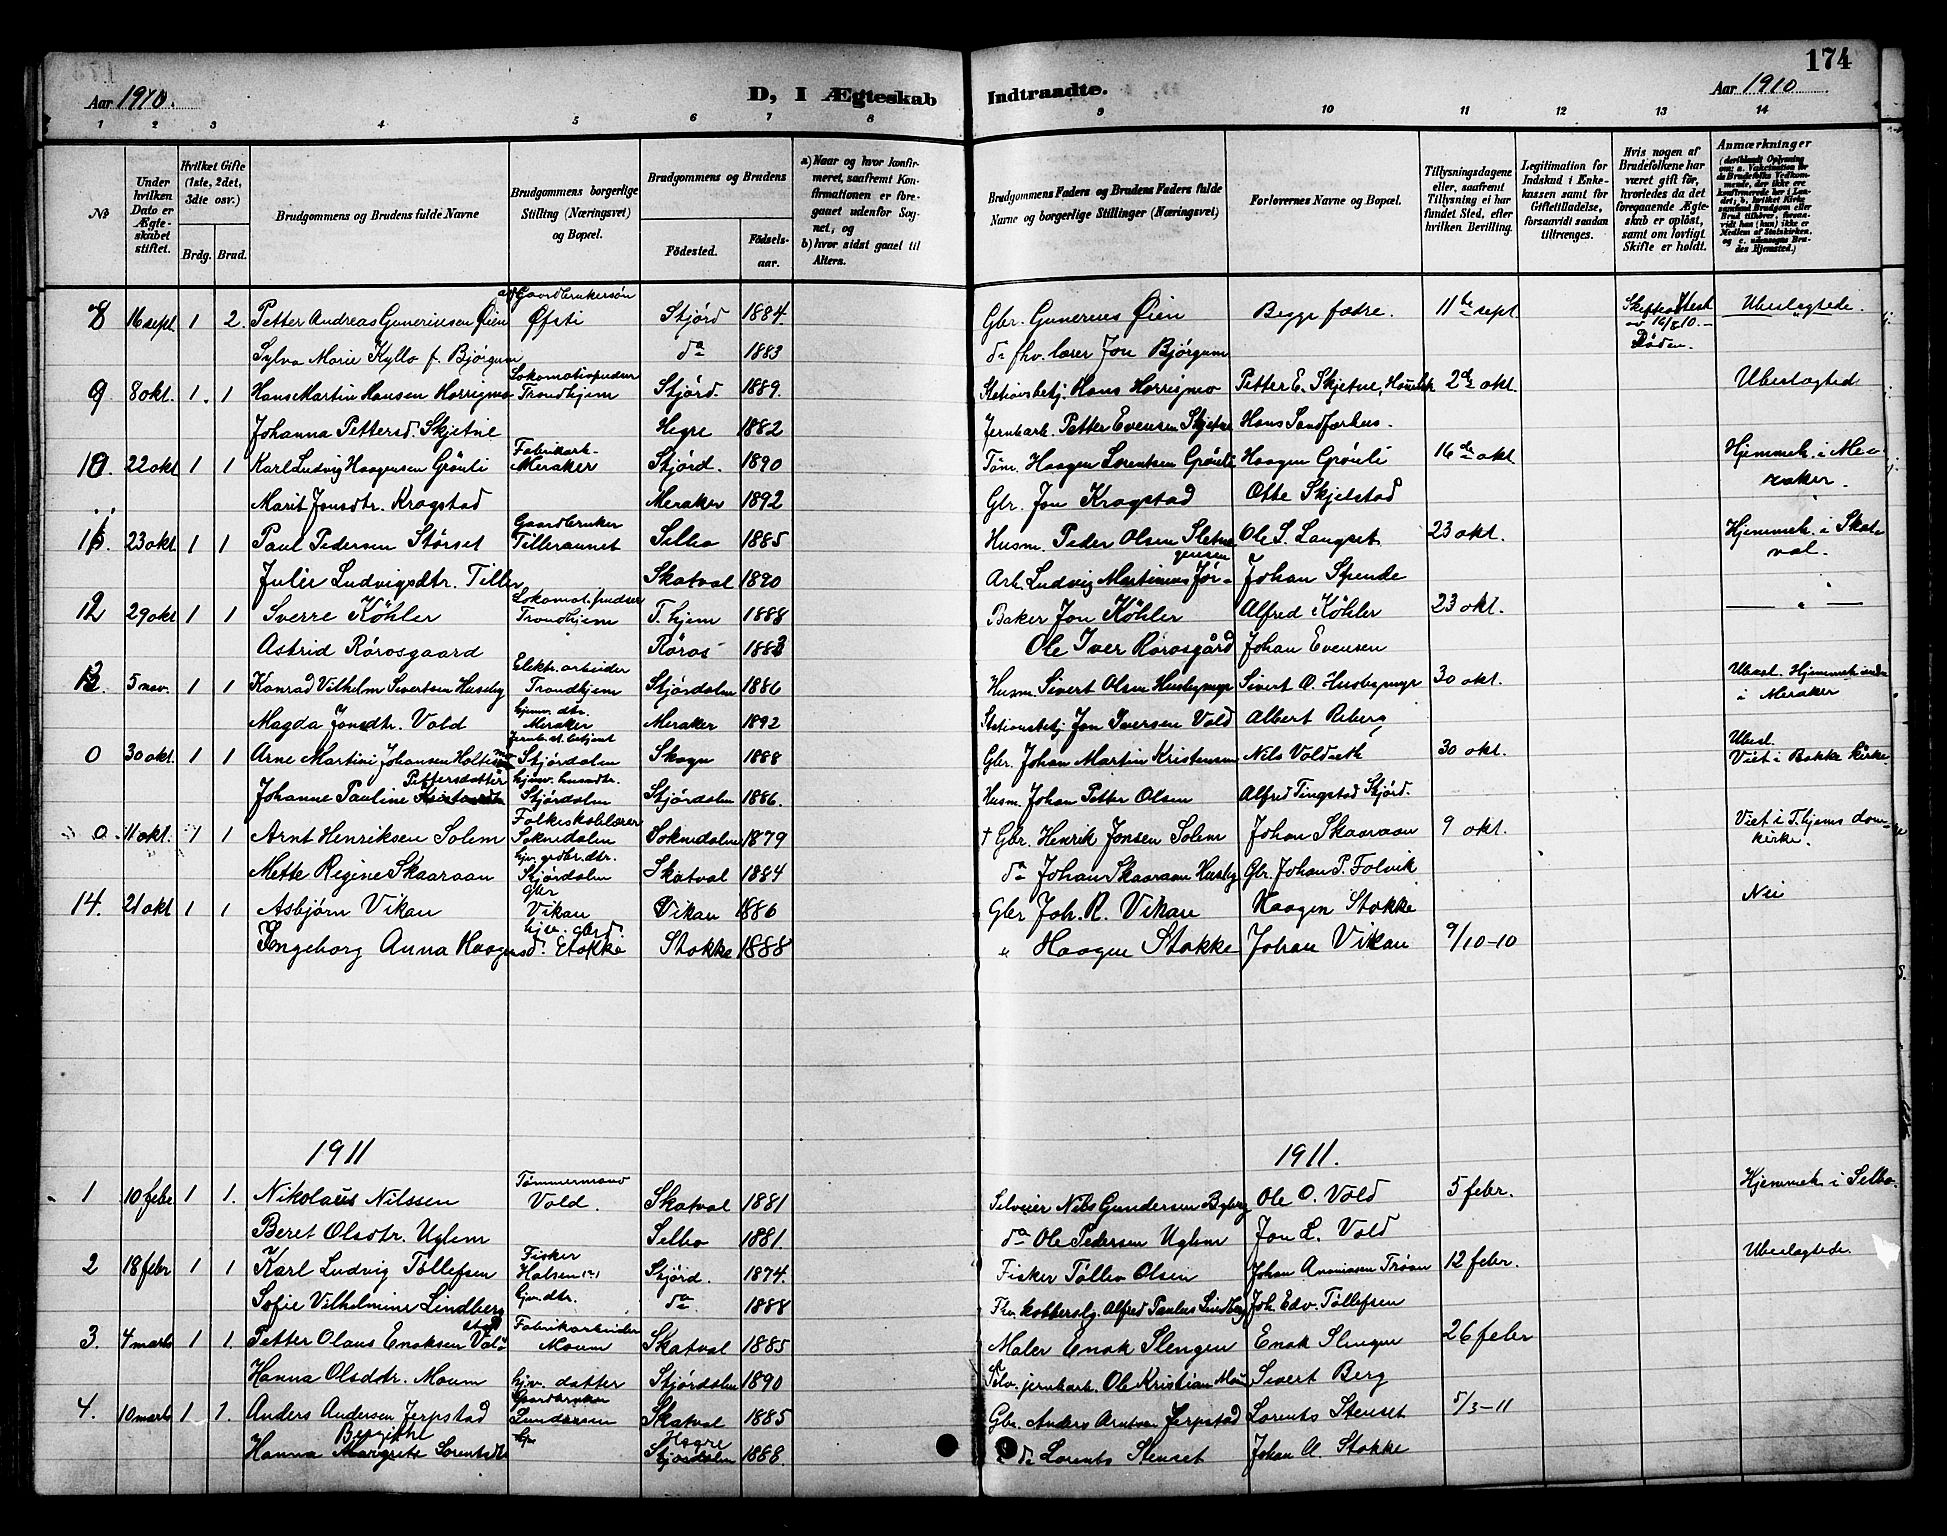 174
Aar 1910.
D, I Ægteskab
Indtraadte.
Aar 1910
1 2 3 4 5 6 7 8 9 10 11 12 13 14
№
Under hvilken Dato er Ægteskabet stiftet.
Hvilket Gifte (1ste, 2det, 3die osv.)
Brdg. Brud.
Brudgommens og Brudens fulde Navne
Brudgommens borgerlige Stilling (Næringsvei) og Bopæl.
Brudgommens og Brudens
Fødested.
Fødselsaar.
a) Naar og hvor konfirmeret, saafremt Konfirmationen er foregaaet udenfor Sognet, og
b) hvor sidst gaaet til Alters.
Brudgommens Faders og Brudens Faders fulde Navne og borgerlige Stillinger (Næringsvei)
Forlovernes Navne og Bopæl.
Tillysningsdagene eller, saafremt Tillysning ei har fundet Sted, efter hvilken Bevilling.
Legitimation for Indskud i Enkekassen samt for Giftetilladelse, forsaavidt saadan tiltrænges.
Hvis nogen af Brudefolkene har været gift før, hvorledes da det foregaaende Ægteskab er opløst, samt om lovligt Skifte er holdt.
Anmærkninger
8 16 sept 1 2. Petter Andreas Gunerius​en Øien af Gaardbrukersøn Øfsti Stjørd 1884. Gbr. Gunerius Øien Begge fædre. 11te sept Skifteattest av 16/8 10. Døden. Ubeslægtede.
Sylva Marie Kyllo f. Bjørgum do 1883 do fhv. lærer Jon Bjørgum
9 8 okt. 1. 1 Hans Martin Hansen Horrigmo Lokomotivpudser Trondhjem Stjørd. 1889. Stationsbetj. Hans Horrigmo Petter E. Skjetne, 2de okt. Ubeslægted
Johanna Pettersd. Skjetne Hegre 1882 Jernbarb. Petter Evensen Skjetne Hans Sandferhus.
10. 22 okt 1 1 Karl Ludvig Haagensen Grønli Fabrikarb. Meraker Stjørd. 1890 Tøm. Haagen Lorentsen Grønli Haagen Grønli 16de okt Hjemmeh. i Meraker.
Marit Jonsdtr. Kragstad Meraker 1892 Gbr. Jon Kragstad Otte Skjelstad
11. 23 okt 1 1 Paul Pedersen Størset Gaardbruker Tilleraunet Selbo 1885 Husm. Peder Olsen Sletne Ole S. Langset 23 okt. Hjemmeh. i Skatval.
Julie Ludvigsdtr. Tiller Skatval 1890 Arb. Ludvig Martinus Jørgensen Johan Spende
12 29 okt 1 1 Sverre Köhler Lokomot. pudser Trondhjem T.hjem 1888 Baker Jon Köhler Alfred Köhler 23 okt. — " —
Astrid Rørosgaard Røros 1883 Ole Iver Rørosgård Johan Evensen
13. 5 nov. 1 1 Konrad Vilhelm Sivertsen Huseby Elektr. arbeider Trondhjem Stjørdalen 1886 Husm. Sivert Olsen Husbymyr Sivert O. Husbymyr 30 okt. Ubesl. Hjemmeh. i Meraker
Magda Jonsdtr. Vold hjemv. dtr. Meraker Meraker 1892 Stationsbetj Jon Iversen Vold Albert Reberg
0 30 okt. 1 1 Arne Martini Johansen Holtesmo Jernb. st. betjent Stjørdalen Skogn 1888 Gbr. Johan Martin Kristensen Nils Voldseth 30 okt. Ubesl. Viet i Bakke kirke
Johanne Pauline Pettersdatter hjemv. husmdtr. Stjørdalen Stjørdalen 1886. Husm. Johan Petter Olsen Alfred Tingstad Stjørd.
0. 11 okt. 1 1 Arnt Henriksen Solem Folkeskolelærer Soknedalen Soknedalen 1879 † Gbr. Henrik Jonsen Solem Johan Skaaraan 9 okt. Viet i T.hjems domkirke.
Mette Regine Skaaraan hjv. grdbr. dtr. Stjørdalen Skatval 1884 do Johan Skaaraan Husby Gbr. Johan P. Folvik
14. 21 okt 1 1 Asbjørn Vikan Gbr Vikan Vikan 1886 Gbr Joh. R. Vikan Haagen Stokke Nei
Ingeborg Anna Haagensd. Stokke hjv. Stokke 1888 " Haagen Stokke Johan Vikan 9/10-10
1911
1911.
1 10 febr 1 1. Nikolaus Nilssen Tømmermand Vold. Skatval 1881 Selveier Nils Gundersen Byberg Ole O. Vold 5 febr. Hjemmeh. i Selbo.
Beret Olsdtr. Uglem Selbo 1881. do Ole Pedersen Uglem Jon L. Vold
2 18 febr 1 1 Karl Ludvig Tøllefsen Fisker Halsen Stjørd. 1874. Fisker Tøllev Olsen Johan Ananiassen Trøan 12 febr. Ubeslægtede.
Sofie Vilhelmine Lindberg hjv. dtr. do 1888 Fhv. kobberslg. Alfred Paulus Lindberg Joh. Edv. Tøllefsen
3. 4 marts 1 1. Petter Olaus Enoksen Valstad Fabrikarbeider Moum Skatval 1885 Maler Enok Slengen Enok Slengen 26 febr
Hanna Olsdtr. Moum hjv. datter Stjørdalen 1890 Selv. jernbarb. Ole Kristian Moum Sivert Berg
4. 10 marts 1 1. Anders Andersen Jerpstad Gaardbruker Sundersen Skatval 1885 Gbr. Anders Arntsen Jerpstad Lorents Stenset 5/3-11
Hanna Bergithe Lorentsdtr Hegre 1888. do Lorents Stenset Johan A. Stokke